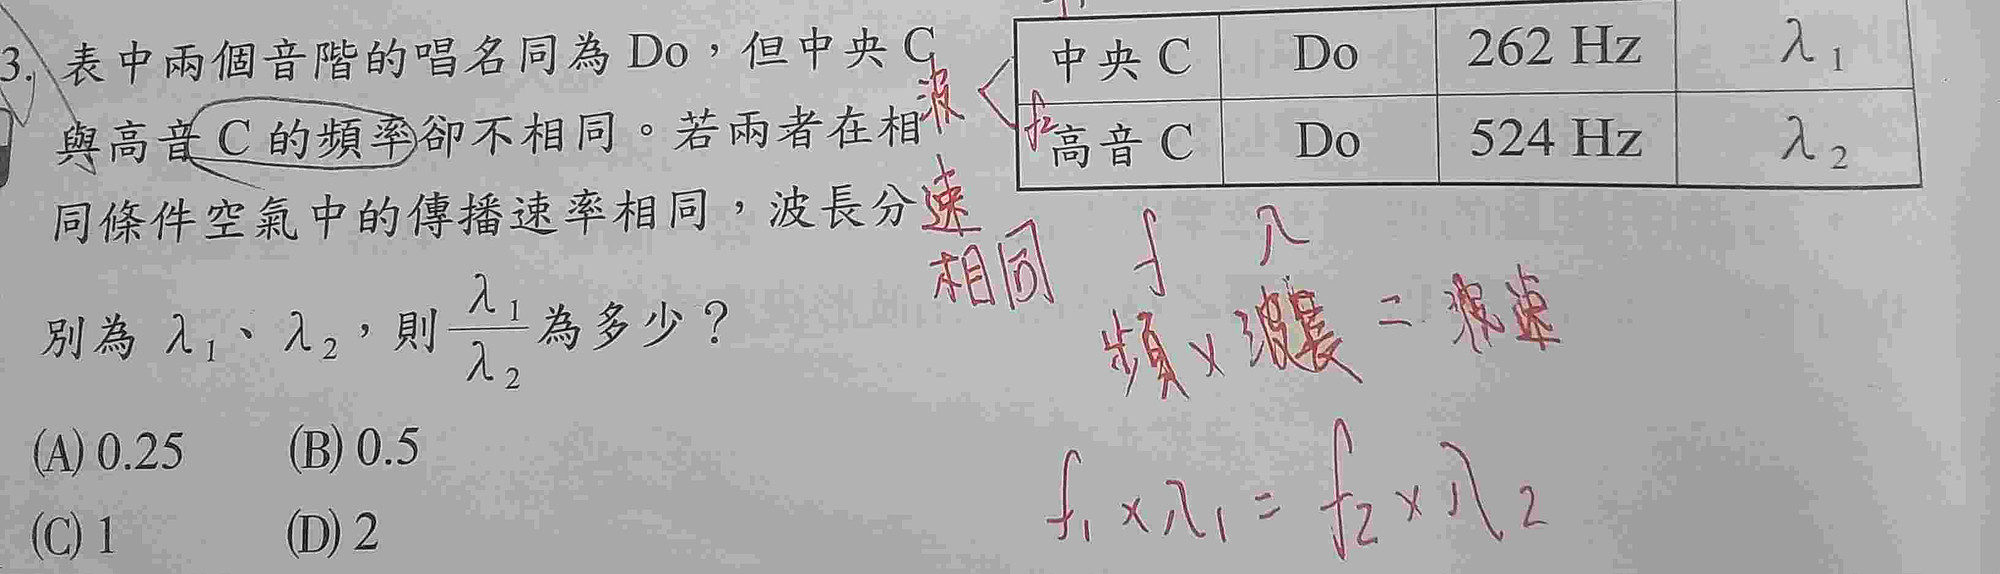 3. 表中兩個音階的唱名同為 Do，但中央 C
與高音 C 的頻率卻不相同。若兩者在相
同條件空氣中的傳播速率相同，波長分
別為 λ₁、λ₂，則 λ₁/λ₂ 為多少？
(A) 0.25 (B) 0.5
(C) 1 (D) 2
中央 C Do 262 Hz λ₁
高音 C Do 524 Hz λ₂
f₂
波
速
相同
f λ
頻 × 波長 = 波速
f₁ × λ₁ = f₂ × λ₂